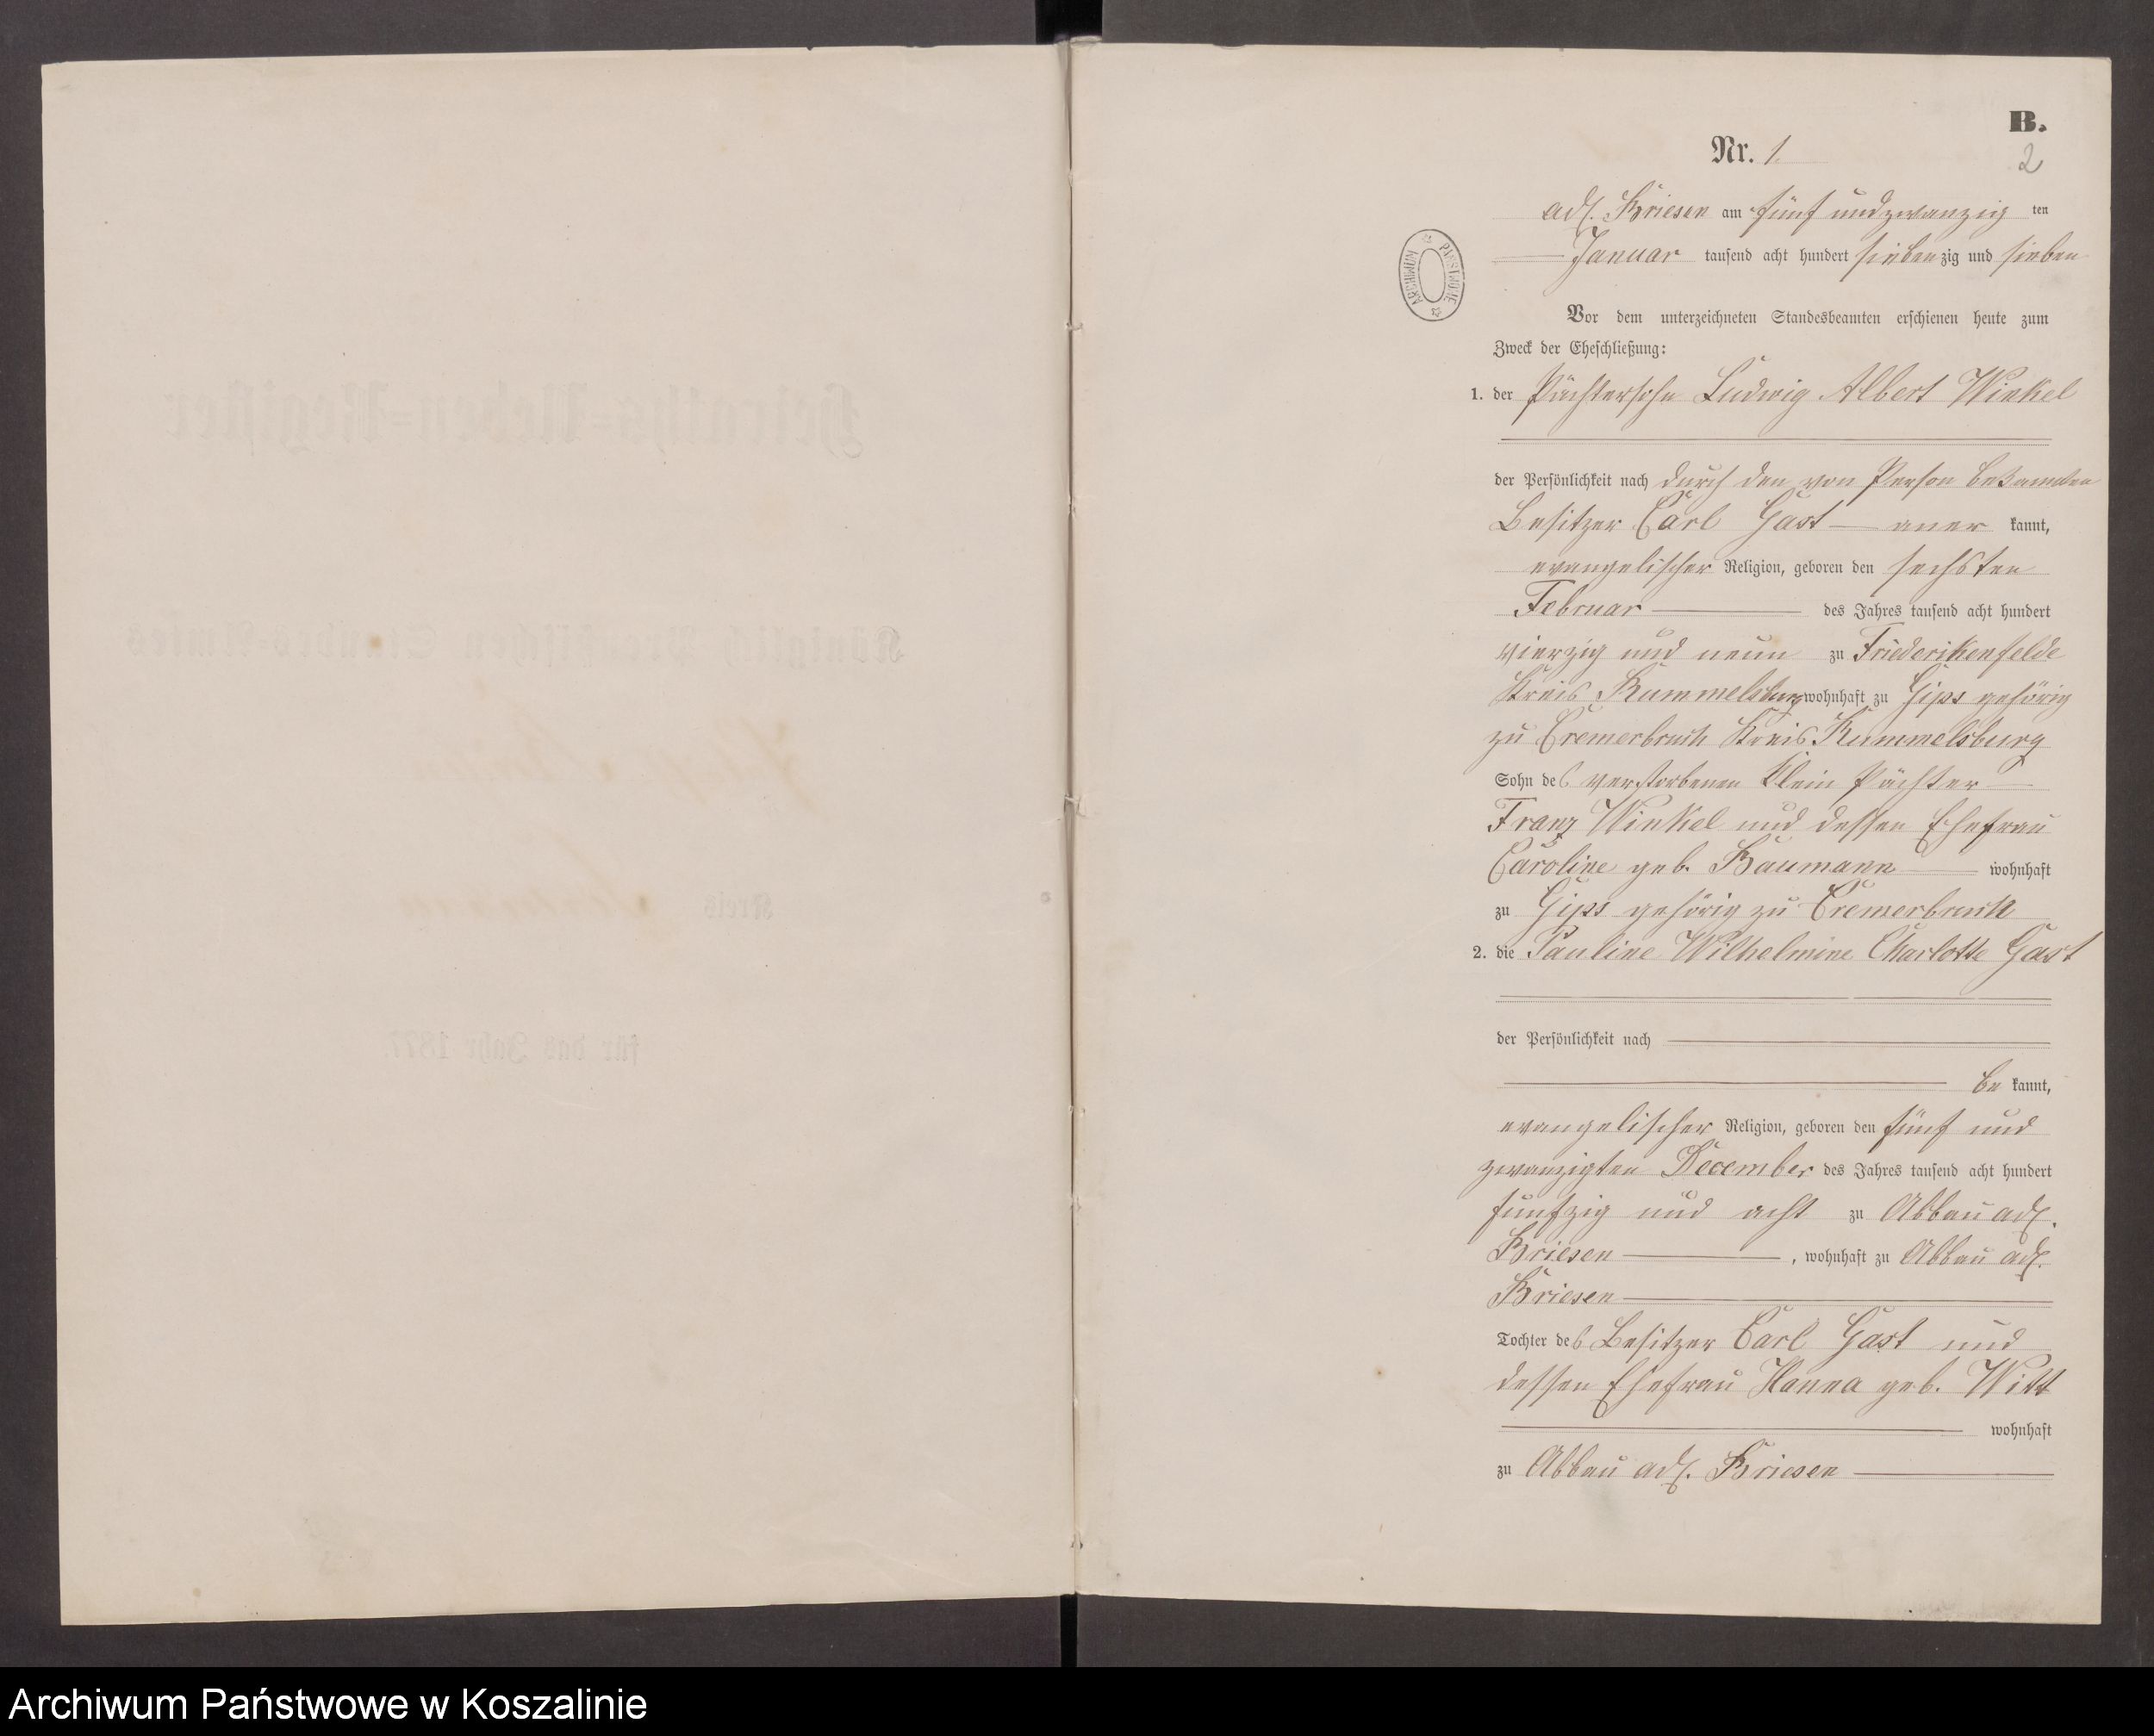 B.
Nr. 1.
2
adl. Briesen am fünf und zwanzig ten
Januar tausend acht hundert siebenzig und sieben
ARCHIWUM PAŃSTWOWE
Vor dem unterzeichneten Standesbeamten erschienen heute zum
Zweck der Eheschließung:
1. der Pächtersohn Ludwig Albert Winkel
der Persönlichkeit nach durch den von Person bekannten
Besitzer Carl Gast aner kannt,
evangelischer Religion, geboren den sechsten
Februar des Jahres tausend acht hundert
vierzig und neun zu Friederikenfelde
Kreis Rummelsburg wohnhaft zu Gips gehörig
zu Cremerbruch Kreis Rummelsburg
Sohn des verstorbenen Klein Pächter
Franz Winkel und dessen Ehefrau
Caroline geb. Baumann wohnhaft
zu Gips gehörig zu Cremerbruch
2. die Pauline Wilhelmine Charlotte Gast
der Persönlichkeit nach
be kannt,
evangelischer Religion, geboren den fünf und
zwanzigten December des Jahres tausend acht hundert
funfzig und acht zu Abbau adl.
Briesen , wohnhaft zu Abbau adl.
Briesen
Tochter des Besitzer Carl Gast und
dessen Ehefrau Hanna geb. Witt
wohnhaft
zu Abbau adl. Briesen
Archiwum Państwowe w Koszalinie